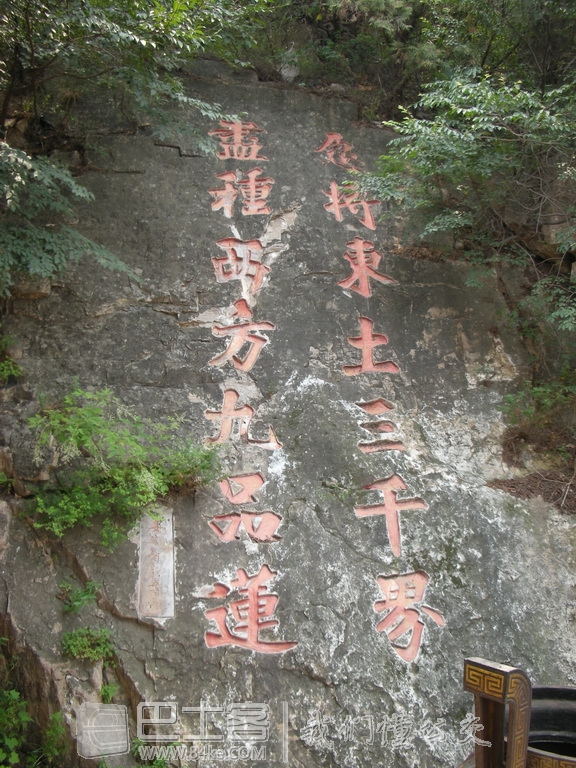 將東土三千界
盡種西方九品蓮
巴士客
www.84ke.com
我们懂公交